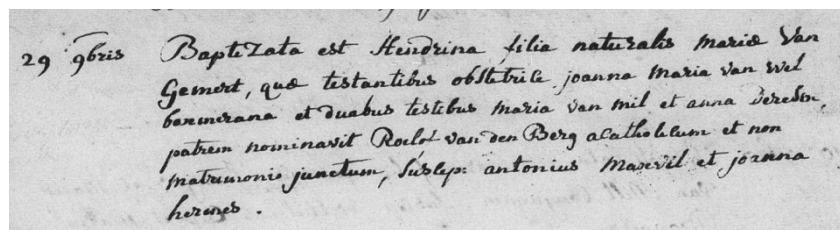 29 9bris Baptizata est Hendrina filia naturalis Mariæ Van
Gemert, quæ testantibus obstetrice joanna Maria van Wel
et duabus testibus Maria van Mil et anna
patrem nominavit Roelof van den Berg acatholicum et non
matrimonio junctum, Suscep: antonius et joanna
hermes.